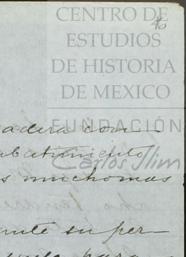 40
CENTRO DE
ESTUDIOS
DE HISTORIA
DE MEXICO
FUNDACIÓN
Carlos Slim
adera com-
abatimiento
s muchomas
ante su per-
para